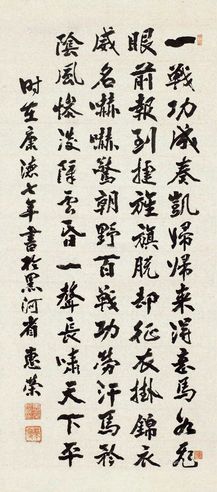 一戰功成奏凱歸歸来得意馬如飛
眼前報到捷旌旗脱却征衣掛錦衣
威名嚇嚇驚朝野百戰功勞汗馬
陰風惨淡陣雲昏一聲長嘯天下平
时在康德七年書於黑河省 惠榮